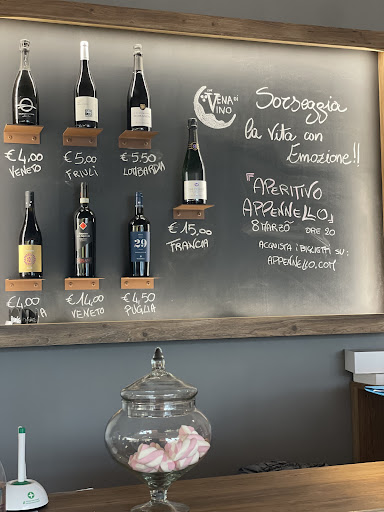 € 4,00
VENETO
€ 5,00
FRIULI
€ 5.50
LOMBARDIA
€ 15,00
FRANCIA
€ 4.00
€ 14,00
VENETO
€ 4,50
PUGLIA
29
VENA DI
VINO
Sorseggia
la Vita con
Emozione!!
"APERITIVO
APPENNELLO"
8 MARZO ORE 20
ACQUISTA I BIGLIETTI SU:
APPENNELLO.COM